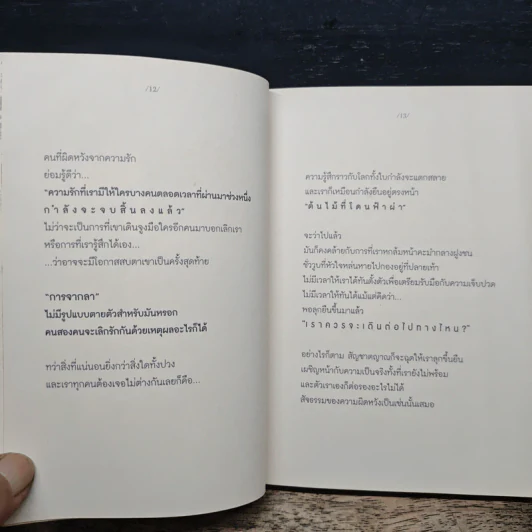 /12/
คนที่ผิดหวังจากความรัก
ย่อมรู้ดีว่า...
"ความรักที่เรามีให้ใครบางคนตลอดเวลาที่ผ่านมาช่วงหนึ่ง
กำลังจะจบสิ้นลงแล้ว"
ไม่ว่าจะเป็นการที่เขาเดินจูงมือใครอีกคนมาบอกเลิกเรา
หรือการที่เรารู้สึกได้เอง...
...ว่าอาจจะมีโอกาสสบตาเขาเป็นครั้งสุดท้าย
"การจากลา"
ไม่มีรูปแบบตายตัวสำหรับมันหรอก
คนสองคนจะเลิกรักกันด้วยเหตุผลอะไรก็ได้
ทว่าสิ่งที่แน่นอนยิ่งกว่าสิ่งใดทั้งปวง
และเราทุกคนต้องเจอไม่ต่างกันเลยก็คือ...
/13/
ความรู้สึกราวกับโลกทั้งใบกำลังจะแตกสลาย
และเราก็เหมือนกำลังยืนอยู่ตรงหน้า
"ต้นไม้ที่โดนฟ้าผ่า"
จะว่าไปแล้ว
มันก็คงคล้ายกับการที่เราหกล้มหน้าคะมำกลางฝูงชน
ชั่ววูบที่หัวใจหล่นหายไปกองอยู่ที่ปลายเท้า
ไม่มีเวลาให้เราได้ทันตั้งตัวเพื่อเตรียมรับมือกับความเจ็บปวด
ไม่มีเวลาให้ทันได้แม้แต่คิดว่า...
พอลุกยืนขึ้นมาแล้ว
"เราควรจะเดินต่อไปทางไหน?"
อย่างไรก็ตาม สัญชาตญาณก็จะฉุดให้เราลุกขึ้นยืน
เผชิญหน้ากับความเป็นจริงทั้งที่เรายังไม่พร้อม
และตัวเราเองก็ต่อรองอะไรไม่ได้
สัจธรรมของความผิดหวังเป็นเช่นนั้นเสมอ